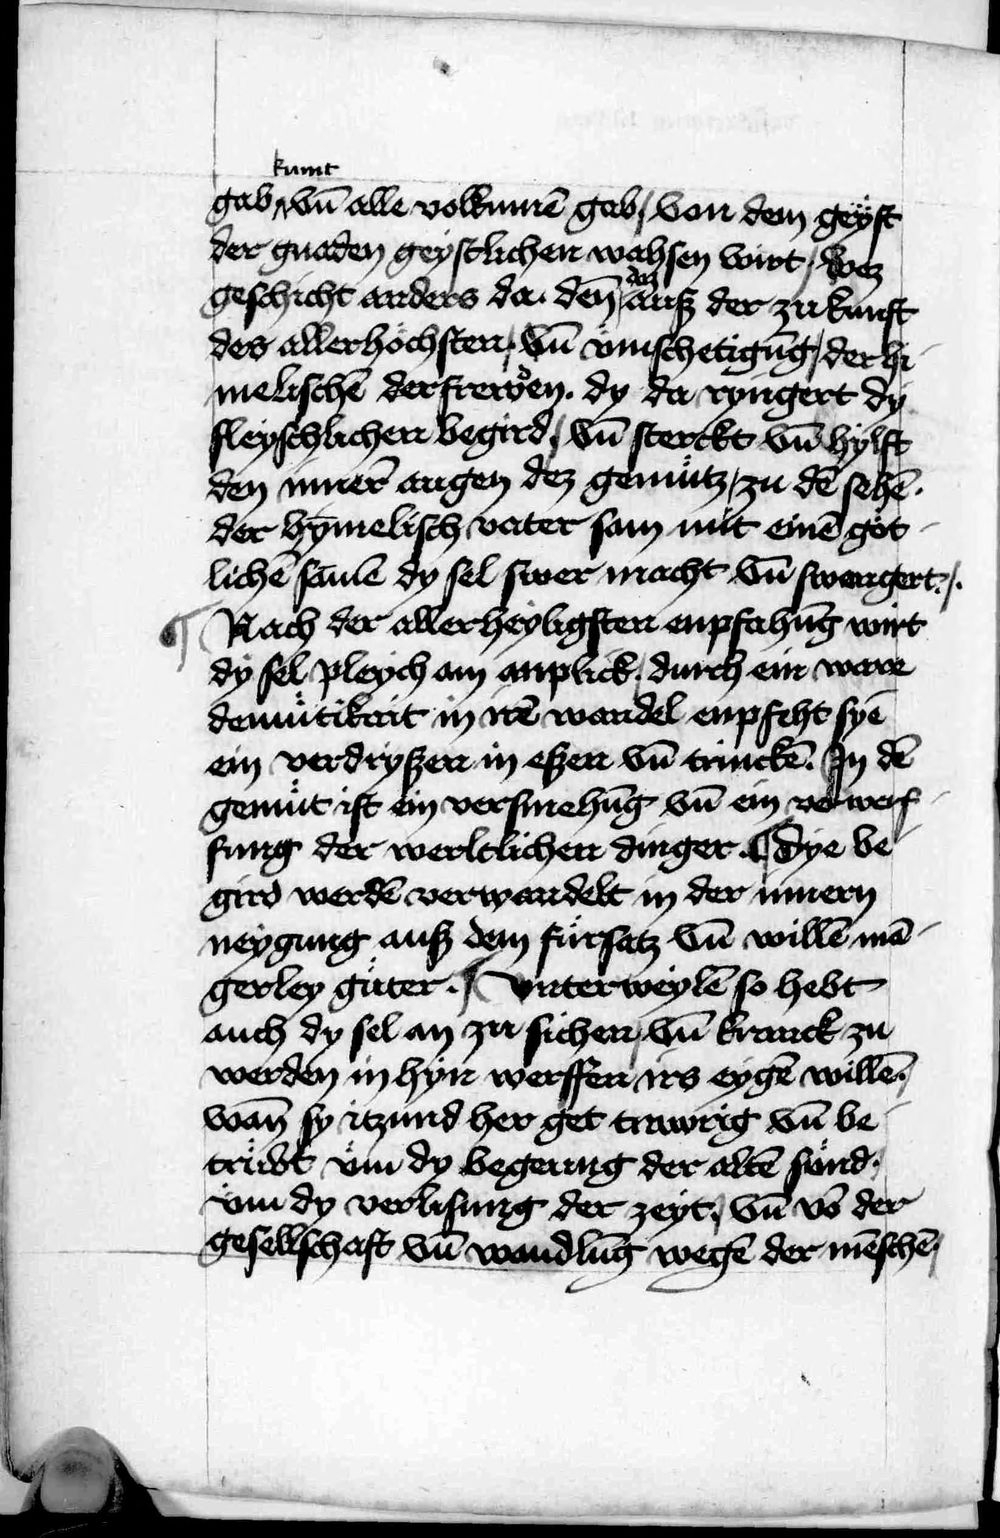 kumt
gab vn̄ alle volkumē gab / von dem geÿst
der gnaden geystlichen wahsen wirt / Wez
geschicht anders da. den̄ dez auß der zukunft
des allerhöchsten / Vn̄ vmschetigūg / der hi-
melischē der frewdē. dy da ryngert dy
fleyschlichen begird / Vn̄ sterckt vn̄ hylft
den inner̄ augen dez gemütz / zu dē sehē.
der hȳmelisch vater sam mit einē göt-
lichē samē dy sel swer macht Vn̄ swengert /.
¶ Nach der allerheyligsten enpfahūg wirt
dy sel pleych am anplick / durch ein ware
demütikeit in irē wandel enpfeht syē
ein verdryßen in eßen vn̄ trinckē. In dē
gemüt ist ein versmehūg vn̄ ein verwerf-
fung der werltlichen dinger. ¶ Dye be-
gird werdē verwandelt in der innern
neygung auß dem fürsatz Vn̄ willē mā-
gerley güter. ¶ Vnterweylē so hebt
auch dy sel an zu sichen / vn̄ kranck zu
werden in hyn werffen irs eygē willē /
wan̄ sy itzund her get trawrig vn̄ be-
trübt vm dy begerung der altē sünd /
vm dy verlisung der zeyt / Vn̄ vō der
gesellschaft vn̄ wandlūg wegē der mēschē /